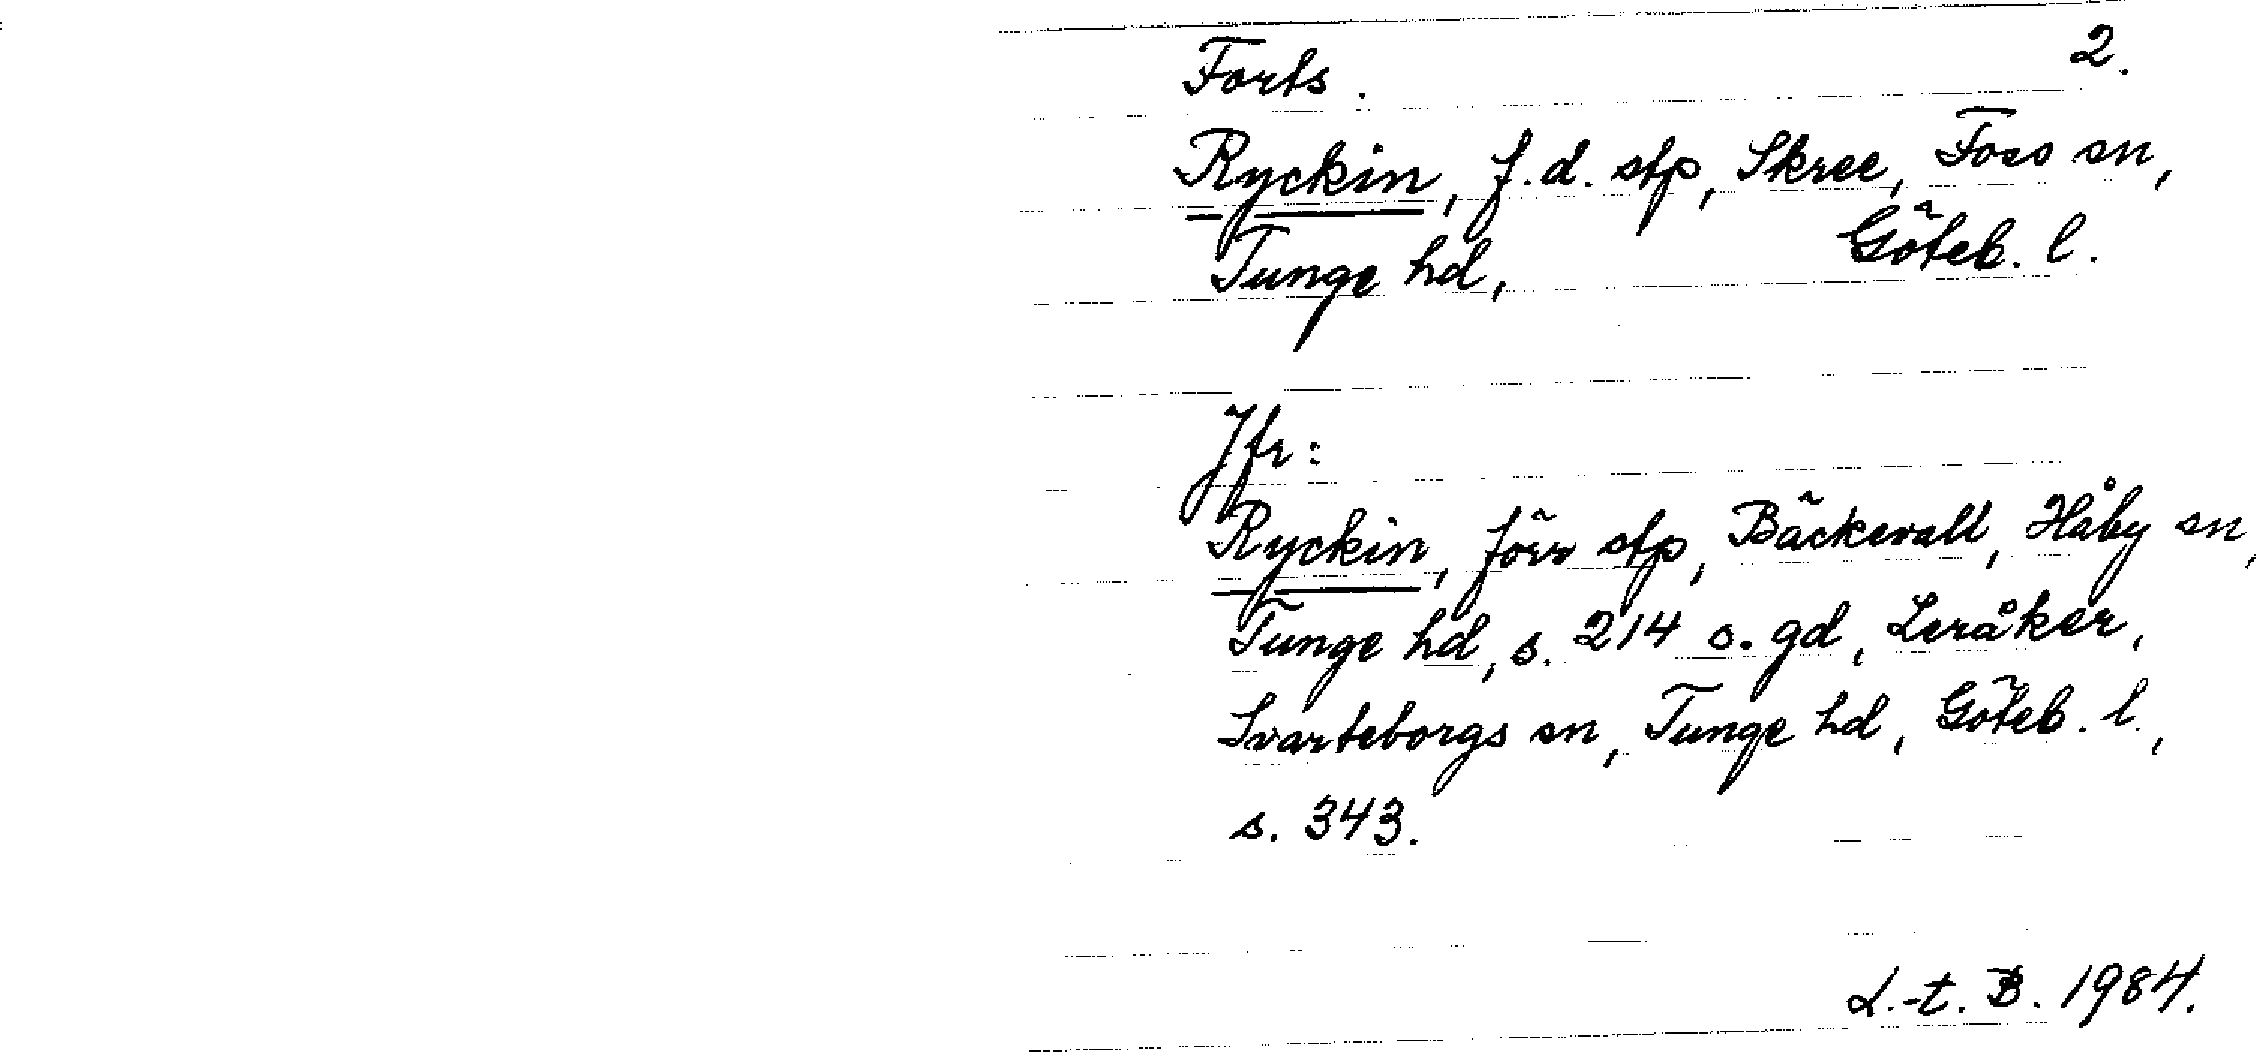 Forts. 2.
Ryckin, f.d. stp, Skree, Foss sn,
Tunge hd, Göteb. l.
Jfr:
Ryckin, förr stp, Bäckevall, Håby sn,
Tunge hd, s. 214 o. gd, Leråker,
Svarteborgs sn, Tunge hd, Göteb. l.,
s. 343.
L.-t. B. 1984.